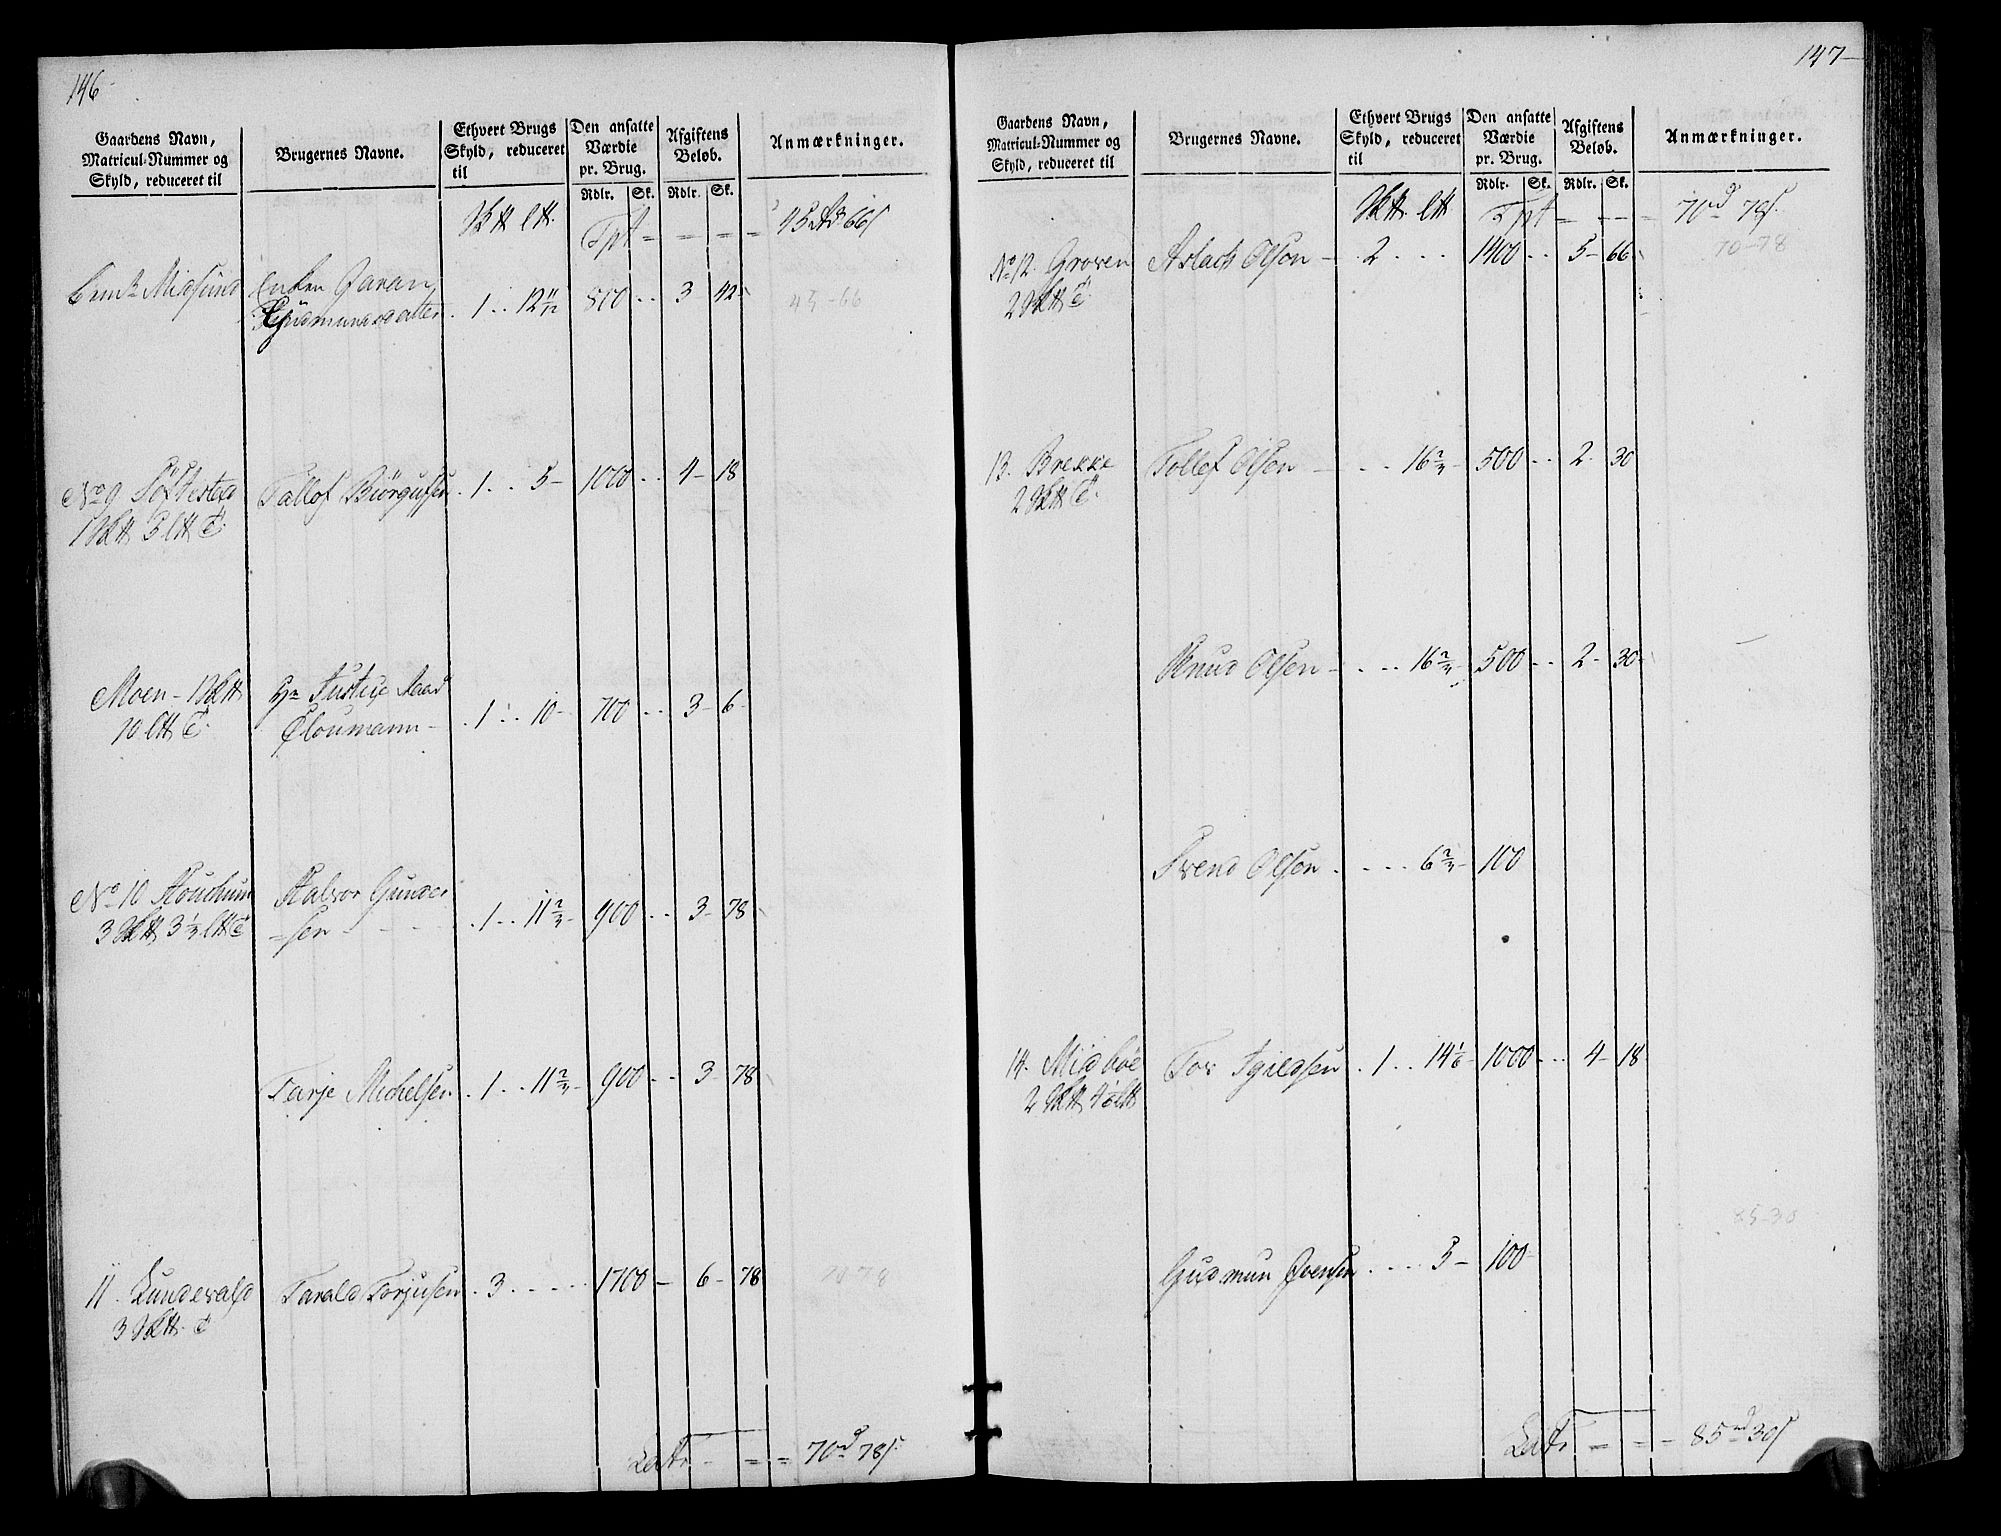 146
Gaardens Navn, Matricul-Nummer og Skyld, reduceret til
Brugernes Navne.
Ethvert Brugs Skyld, reduceret til
Den ansatte Værdie pr. Brug.
Afgiftens Beløb.
Anmærkninger.
Rdlr. Sk. Rdlr. Sk.
Tpt = = = = 45 66
Midsund Enken
Gudmunds datter . 1 .. 12 11/12 500 .. 3 42
45-66
No 9 Tallof Biörgufsen . 1 .. 5 - 1000 .. 4 - 18
Moen - 1 Justice Raad
10 Cloumann - . 1 .. 10 - 700 .. 3 - 6 -
No 10 Halvor Gunder
3 3 1/3 = sen - - - . 1 .. 11 2/3 - 900 .. 3 - 78
Tarje Michelsen . 1 .. 11 2/3 - 900 .. 3 - 78
11. Tarald Torjusen . 3 . . . . 1700 - 6 - 78
3
70-78
Latr - = = 70 rd 78 s
147
Gaardens Navn, Matricul-Nummer og Skyld, reduceret til
Brugernes Navne.
Ethvert Brugs Skyld, reduceret til
Den ansatte Værdie pr. Brug.
Afgiftens Beløb.
Anmærkninger.
Rdlr. Sk. Rdlr. Sk.
Tpt = - - - = 70 rd 78 s
No 12. Groven Aslach Olsen - . 2 . . . 1400 .. 5 - 66
70-78
2
13. Brekke Tollef Olsen - . . . 16 2/3 - 500 .. 2 - 30
2
Knud Olsen - . . . 16 2/3 - 500 .. 2 - 30 -
Svend Olsen . . . . 6 2/3 - 100
14. Midböe Tor . 1 .. 14 1/6 - 1000 .. 4 - 18
2 4 1/6
85-30
Gudmun . . . . 5 - 100 -
Latr = = - 85 rd 30 s